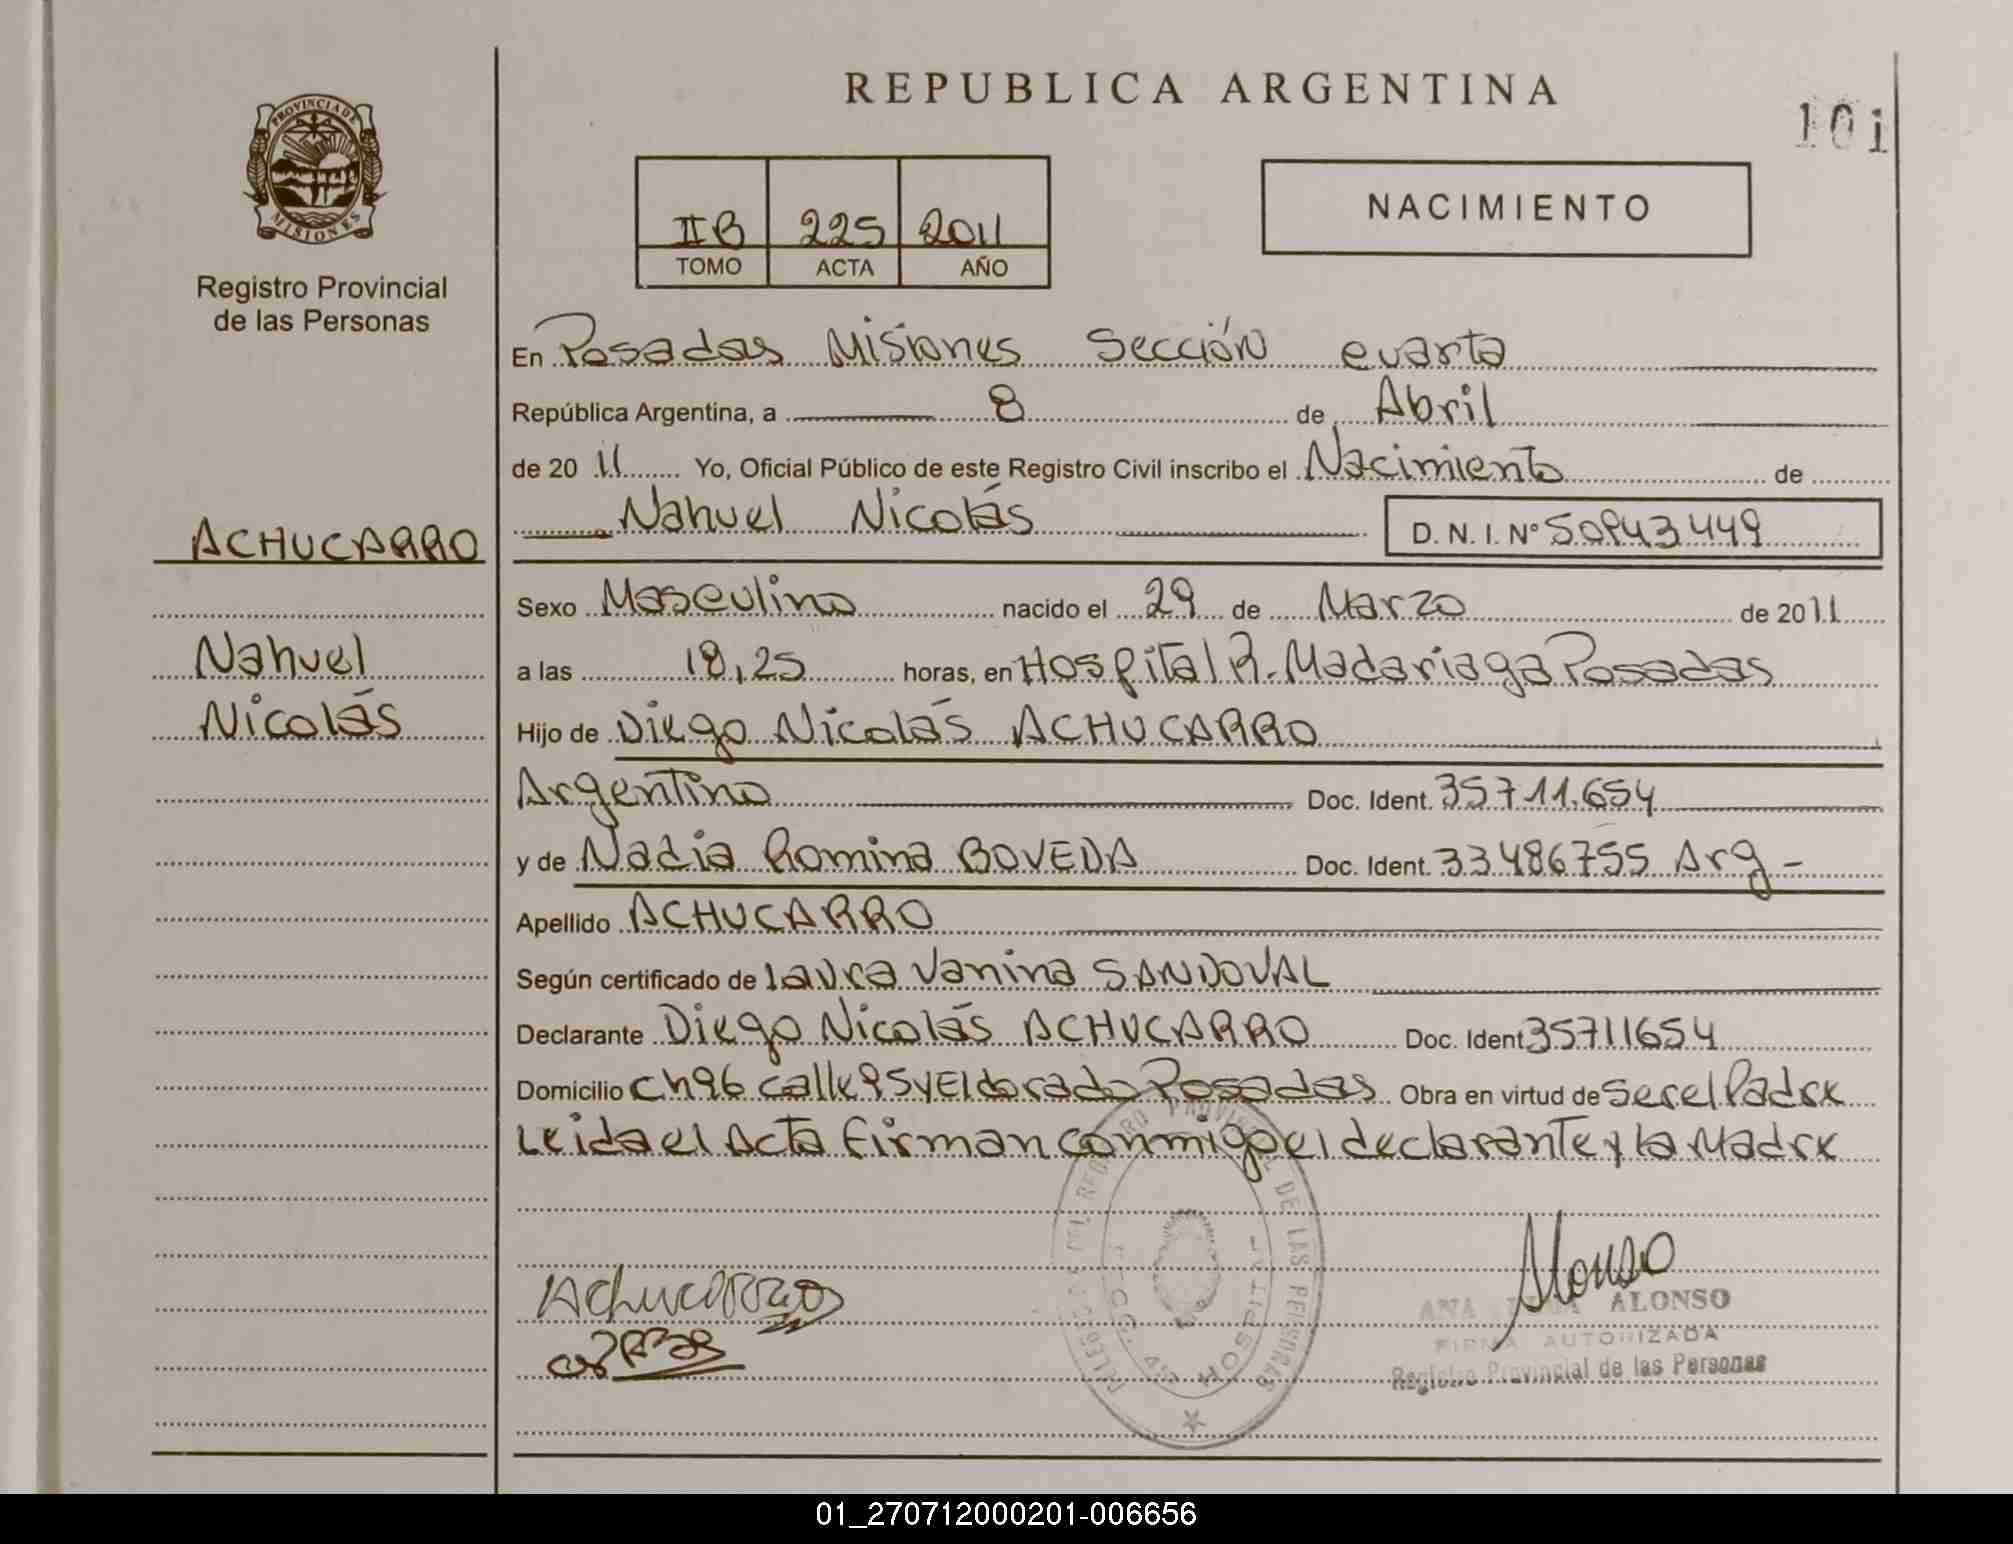 REPUBLICA ARGENTINA
101
PROVINCIA DE
MISIONES
Registro Provincial
de las Personas
IIB 225 2011
TOMO ACTA AÑO
NACIMIENTO
En Posadas Misiones Sección cuarta
República Argentina, a 8 de Abril
de 2011 Yo, Oficial Público de este Registro Civil inscribo el Nacimiento de
Nahuel Nicolás D.N.I. Nº
ACHUCARRO
Nahuel
Nicolás
Sexo Masculino nacido el 29 de Marzo de 2011
a las 18,25 horas, en Hospital R. Madariaga Posadas
Hijo de Diego Nicolás ACHUCARRO
Argentino Doc. Ident. 35711.654
y de Nadia Romina BOVEDA Doc. Ident. 33486755 Arg -
Apellido ACHUCARRO
Según certificado de Laura Vanina SANDOVAL
Declarante Diego Nicolás ACHUCARRO Doc. Ident 35711654
Domicilio Ch 96 calle 95 y Eldorado Posadas Obra en virtud de Ser el Padre
Leida el Acta firman conmigo el declarante y la Madre
Achucarro
Alonso
ANA ALONSO
FIRMA AUTORIZADA
Registro Provincial de las Personas
DEL REGISTRO PROVINCIAL DE LAS PERSONAS
SECC. 4ta HOSPITAL
01_270712000201-006656